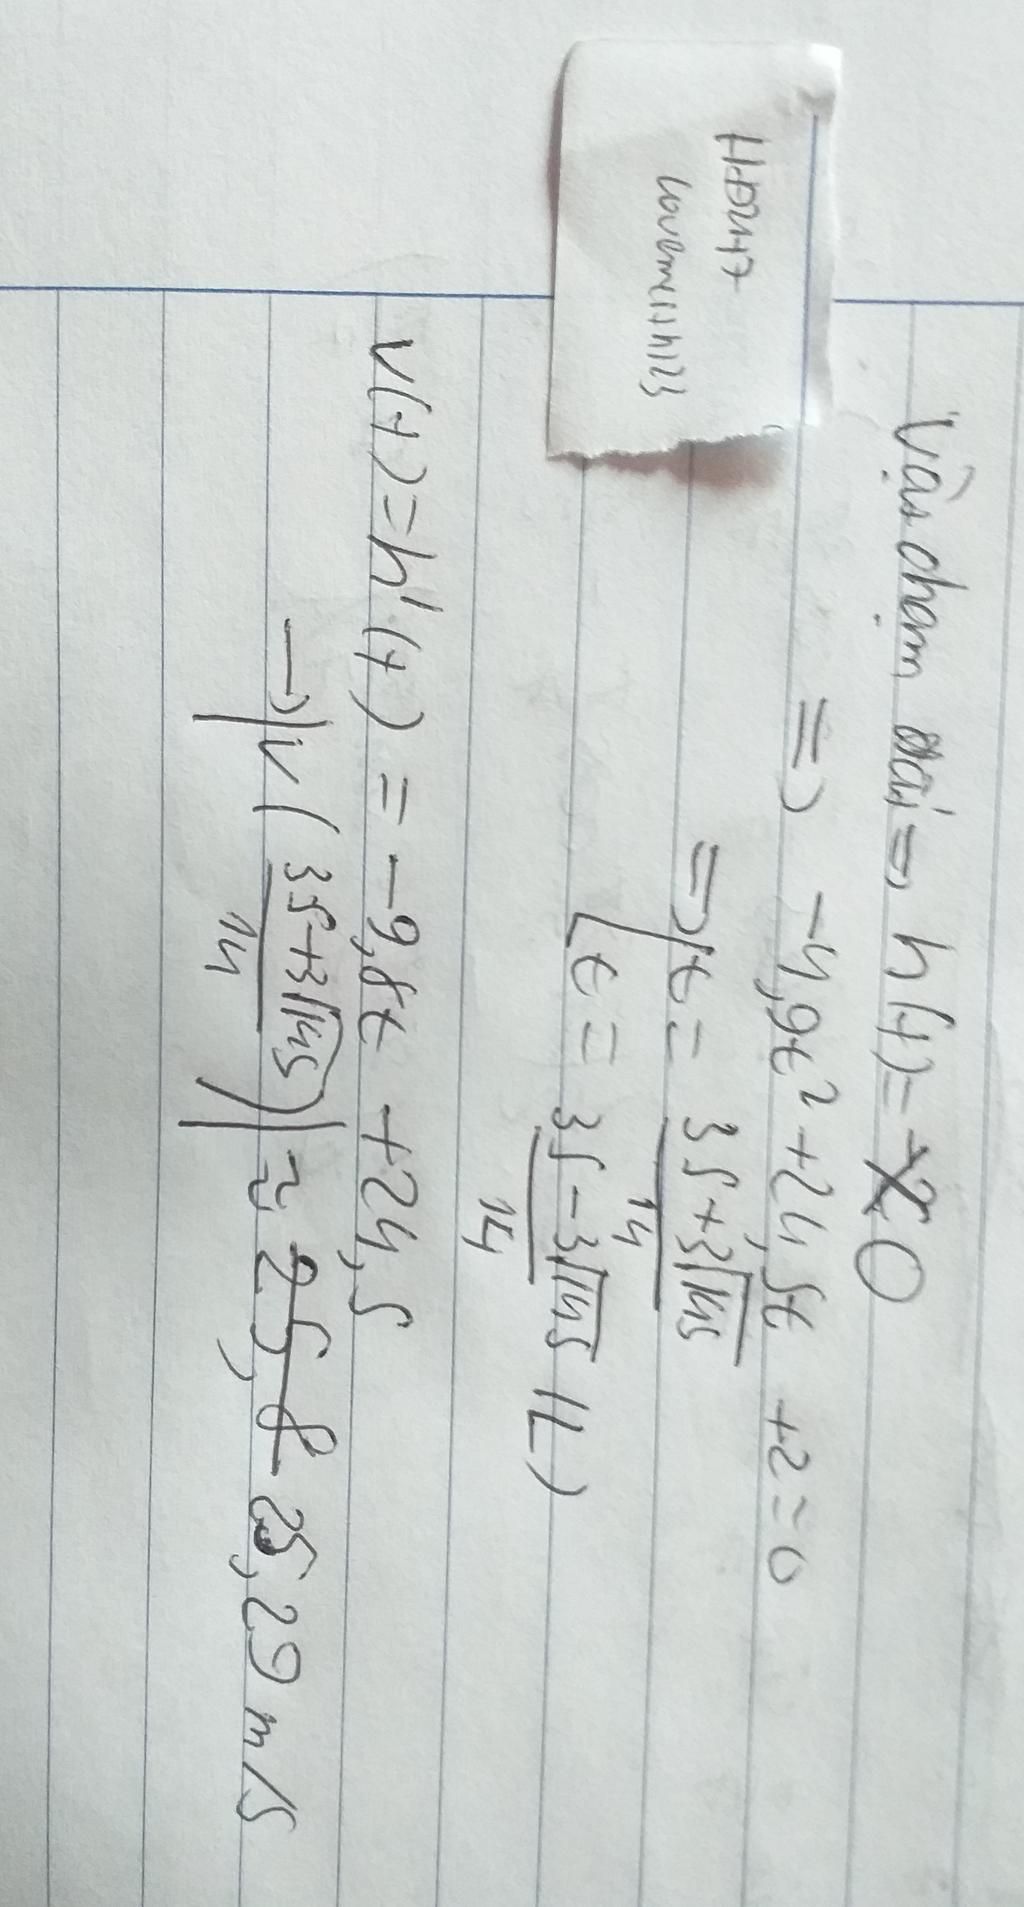 HĐ247
lovemath123
Vật chạm đất => h(t) = 0
=> -4,9t² + 24,5t + 2 = 0
=> [t = 35+3√145 / 14
[t = 35-3√145 / 14 (L)
v(t) = h'(t) = -9,8t + 24,5
→ |v(35+3√145 / 14)| ≈ 25,8 25,29 m/s